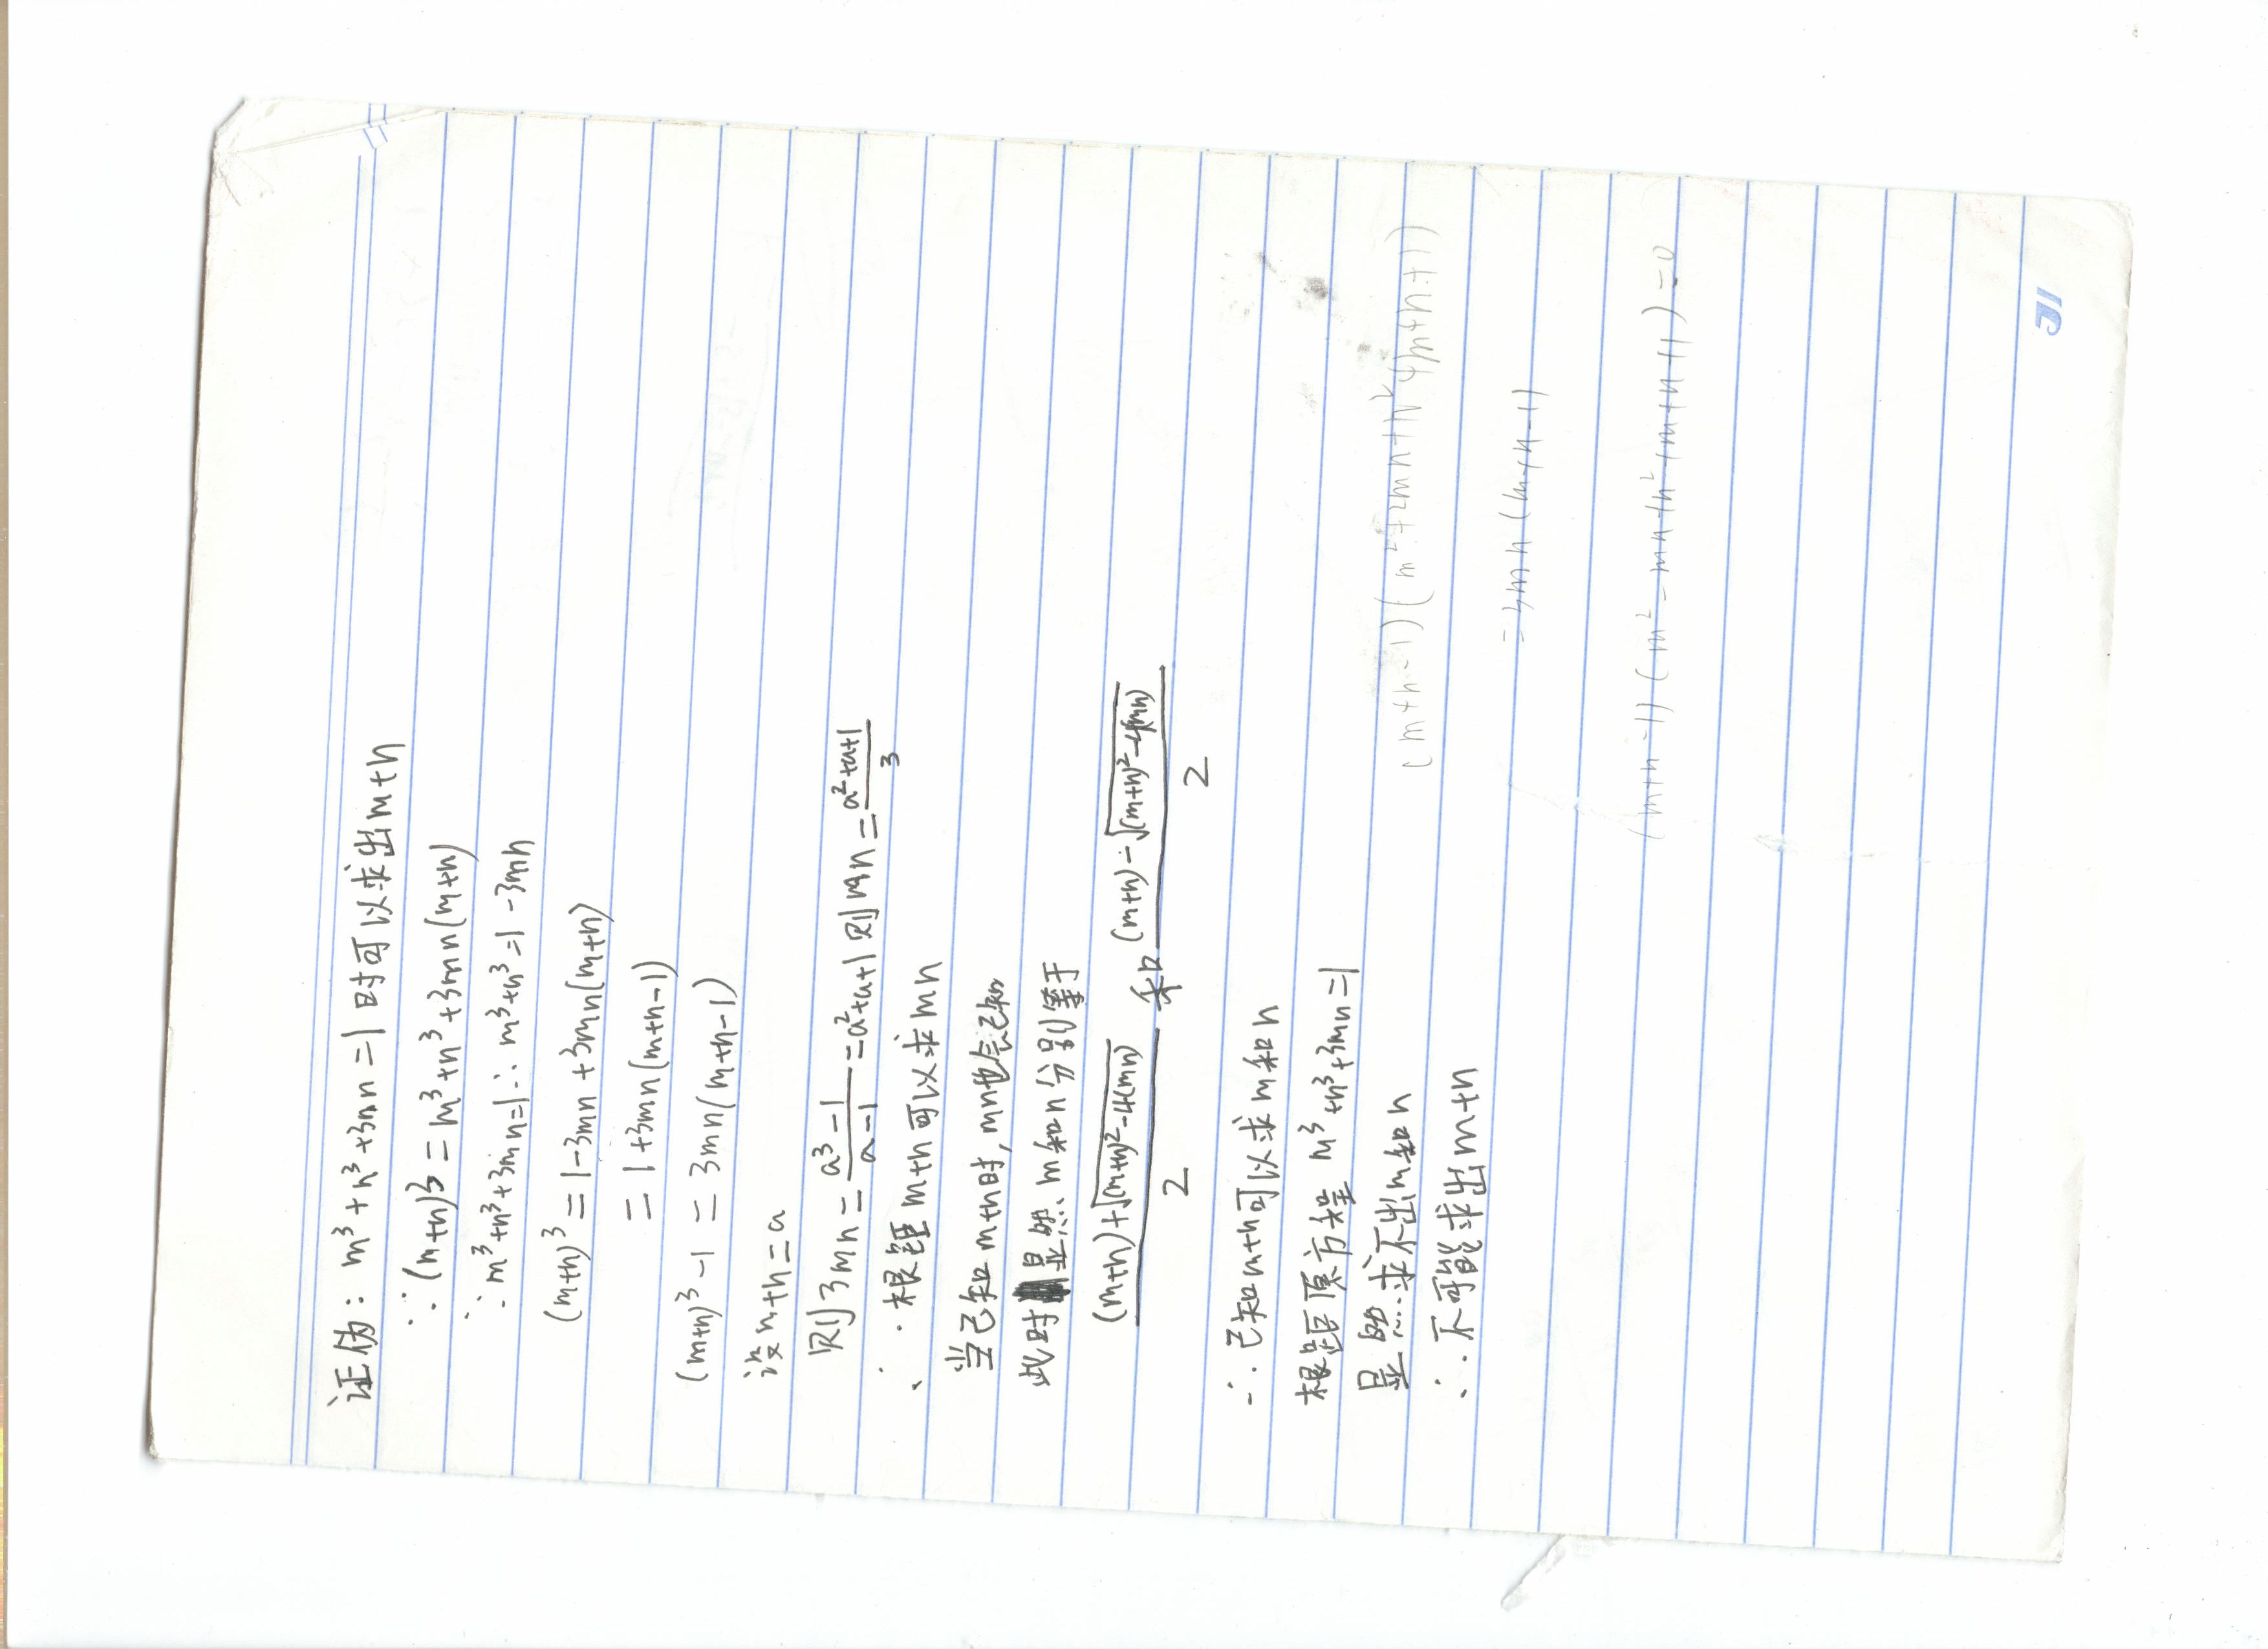 证伪：m³+n³+3mn=1时可以求出m+n
∵(m+n)³=m³+n³+3mn(m+n)
∵m³+n³+3mn=1∴m³+n³=1-3mn
(m+n)³=1-3mn+3mn(m+n)
=1+3mn(m+n-1)
(m+n)³-1=3mn(m+n-1)
设m+n=a
则3mn=\frac{a³-1}{a-1}=a²+a+1则mn=\frac{a²+a+1}{3}
∴根鉅m+n可以求mn
当己知m+n时,mn也会己知
此时显然m和n分别等于
\frac{(m+n)+\sqrt{(m+n)²-4(mn)}}{2}和\frac{(m+n)-\sqrt{(m+n)²-4(mn)}}{2}
∴己知m+n可以求m和n
根鉅原方程m³+n³+3mn=1
显然求不出m和n
∴不可能求出m+n
(m+n-1)(m²+2mn+n²+m+n+1)
=3mn(m+n-1)
(m+n-1)(m²-mn+n²+m+n+1)=0